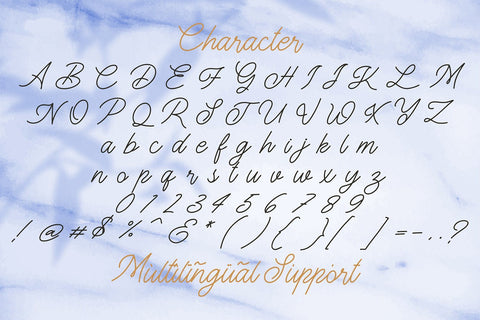 Character
A B C D E F G H I J K L M
N O P Q R S T U V W X Y Z
a b c d e f g h i j k l m
n o p q r s t u v w x y z
0 1 2 3 4 5 6 7 8 9
! @ # $ % ^ & * ( ) { } [ ] = - . , ?
Multilingual Support